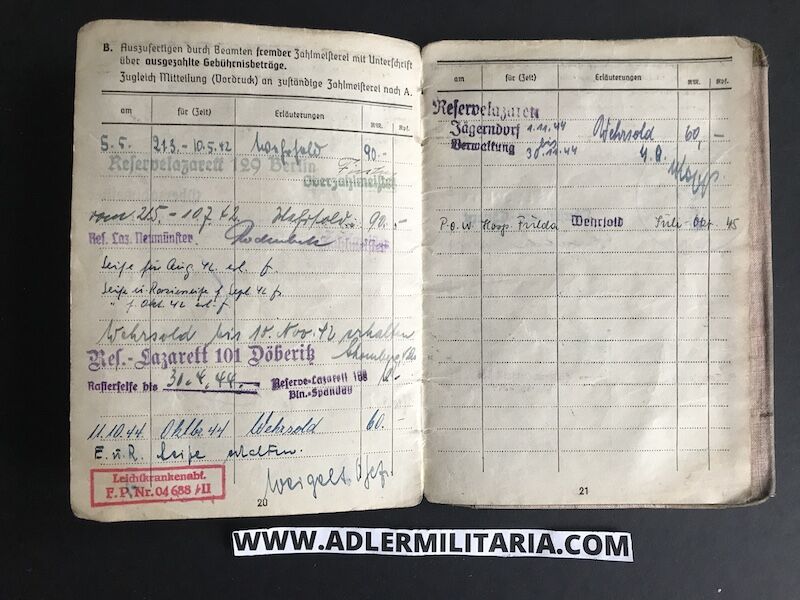 B. Auszufertigen durch Beamten fremder Zahlmeisterei mit Unterschrift
über ausgezahlte Gebührnisbeträge.
Zugleich Mitteilung (Vordruck) an zuständige Zahlmeisterei nach A.
am für (Zeit) Erläuterungen RM. Rpf.
5.5. 21.3.-10.5.42 Wehrsold 90.-
Reservelazarett 129 Berlin
Oberzahlmeister
vom 21.5.-10.7.42 Wehrsold 90.-
Res. Laz. Neumünster Zahlmeister
Seife für Aug 42 erl.
Seife u. Rasierseife f. Sept 42
" f. Okt. 42 erl.
Wehrsold bis 10. Nov. 42 erhalten
Res.-Lazarett 101 Döberitz
Rasierseife bis 30.4.44. Reserve-Lazarett 188
Bln.-Spandau
11.10.44 Oktbr. 44 Wehrsold 60.-
E. u. R. Seife erhalten.
Leichtkrankenabt.
F.P. Nr. 04688/II
Weigelt
20
am für (Zeit) Erläuterungen RM. Rpf.
Reservelazarett
Jägerndorf 1.11.44 Wehrsold 60,-
Verwaltung bis 30.11.44
P.o.W Hosp. Fulda Wehrsold Juli-Okt. 45
21
WWW.ADLERMILITARIA.COM